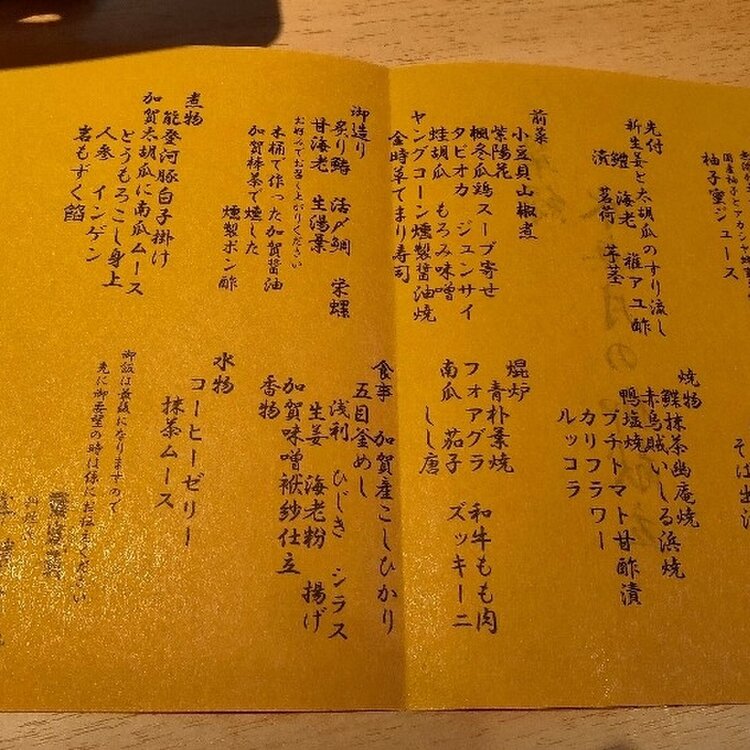 国産柚子とアカシア蜂
柚子蜜ジュース
先付
新生姜と太胡瓜のすり流し
鱧 海老 稚アユ酢
漬 茗荷 芋茎
前菜
小豆貝山椒煮
紫陽花
楓冬瓜鶏スープ寄せ
タピオカ ジュンサイ
蛙胡瓜 もろみ味噌
ヤングコーン燻製醤油焼
金時草てまり寿司
御造り
炙り鰆 活〆鯛 栄螺
甘海老 生湯葉
お好みでお召し上がりください
木桶で作った加賀醤油
加賀棒茶で燻した
燻製ポン酢
煮物
能登河豚白子掛け
加賀太胡瓜に南瓜ムース
とうもろこし身上
人参 インゲン
岩もずく餡
焼物
鰈抹茶幽庵焼
赤烏賊いしる浜焼
鴨塩焼
プチトマト甘酢漬
カリフラワー
ルッコラ
焜炉
青朴葉焼 和牛もも肉
フォアグラ ズッキーニ
南瓜 茄子 しし唐
食事 加賀産こしひかり
五目釜めし
浅利 ひじき シラス
生姜 海老粉 揚げ
加賀味噌袱紗仕立
香物
水物
コーヒーゼリー
抹茶ムース
御飯は最後になりますので
先に御要望の時は係にお伝えください